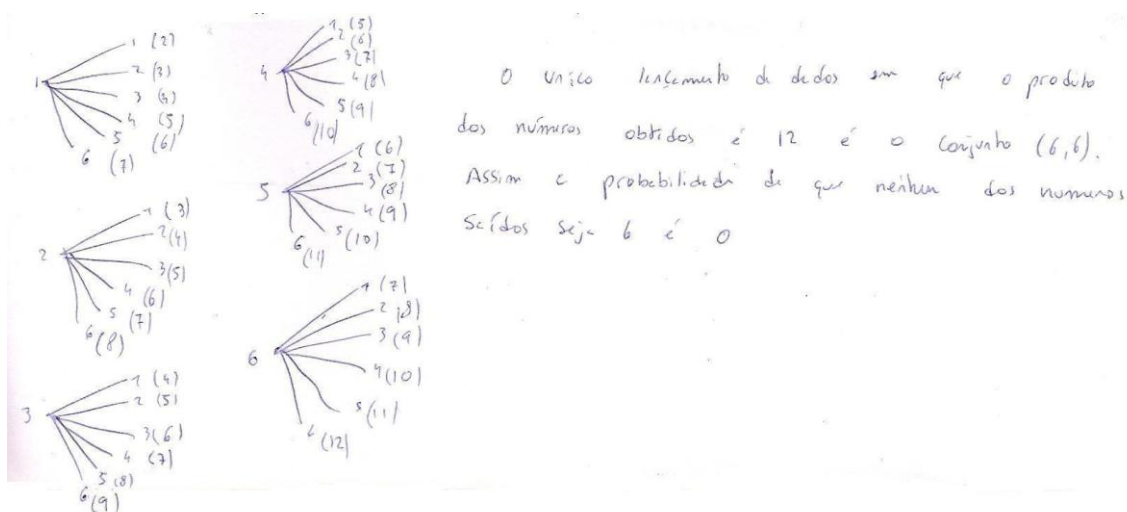 1
1 (2)
2 (3)
3 (4)
4 (5)
5 (6)
6 (7)
2
1 (3)
2 (4)
3 (5)
4 (6)
5 (7)
6 (8)
3
1 (4)
2 (5)
3 (6)
4 (7)
5 (8)
6 (9)
4
1 (5)
2 (6)
3 (7)
4 (8)
5 (9)
6 (10)
5
1 (6)
2 (7)
3 (8)
4 (9)
5 (10)
6 (11)
6
1 (7)
2 (8)
3 (9)
4 (10)
5 (11)
6 (12)
O unico lançamento de dados em que o produto
dos números obtidos é 12 é o conjunto (6,6).
Assim a probabilidade de que nenhum dos numeros
saídos seja 6 é 0